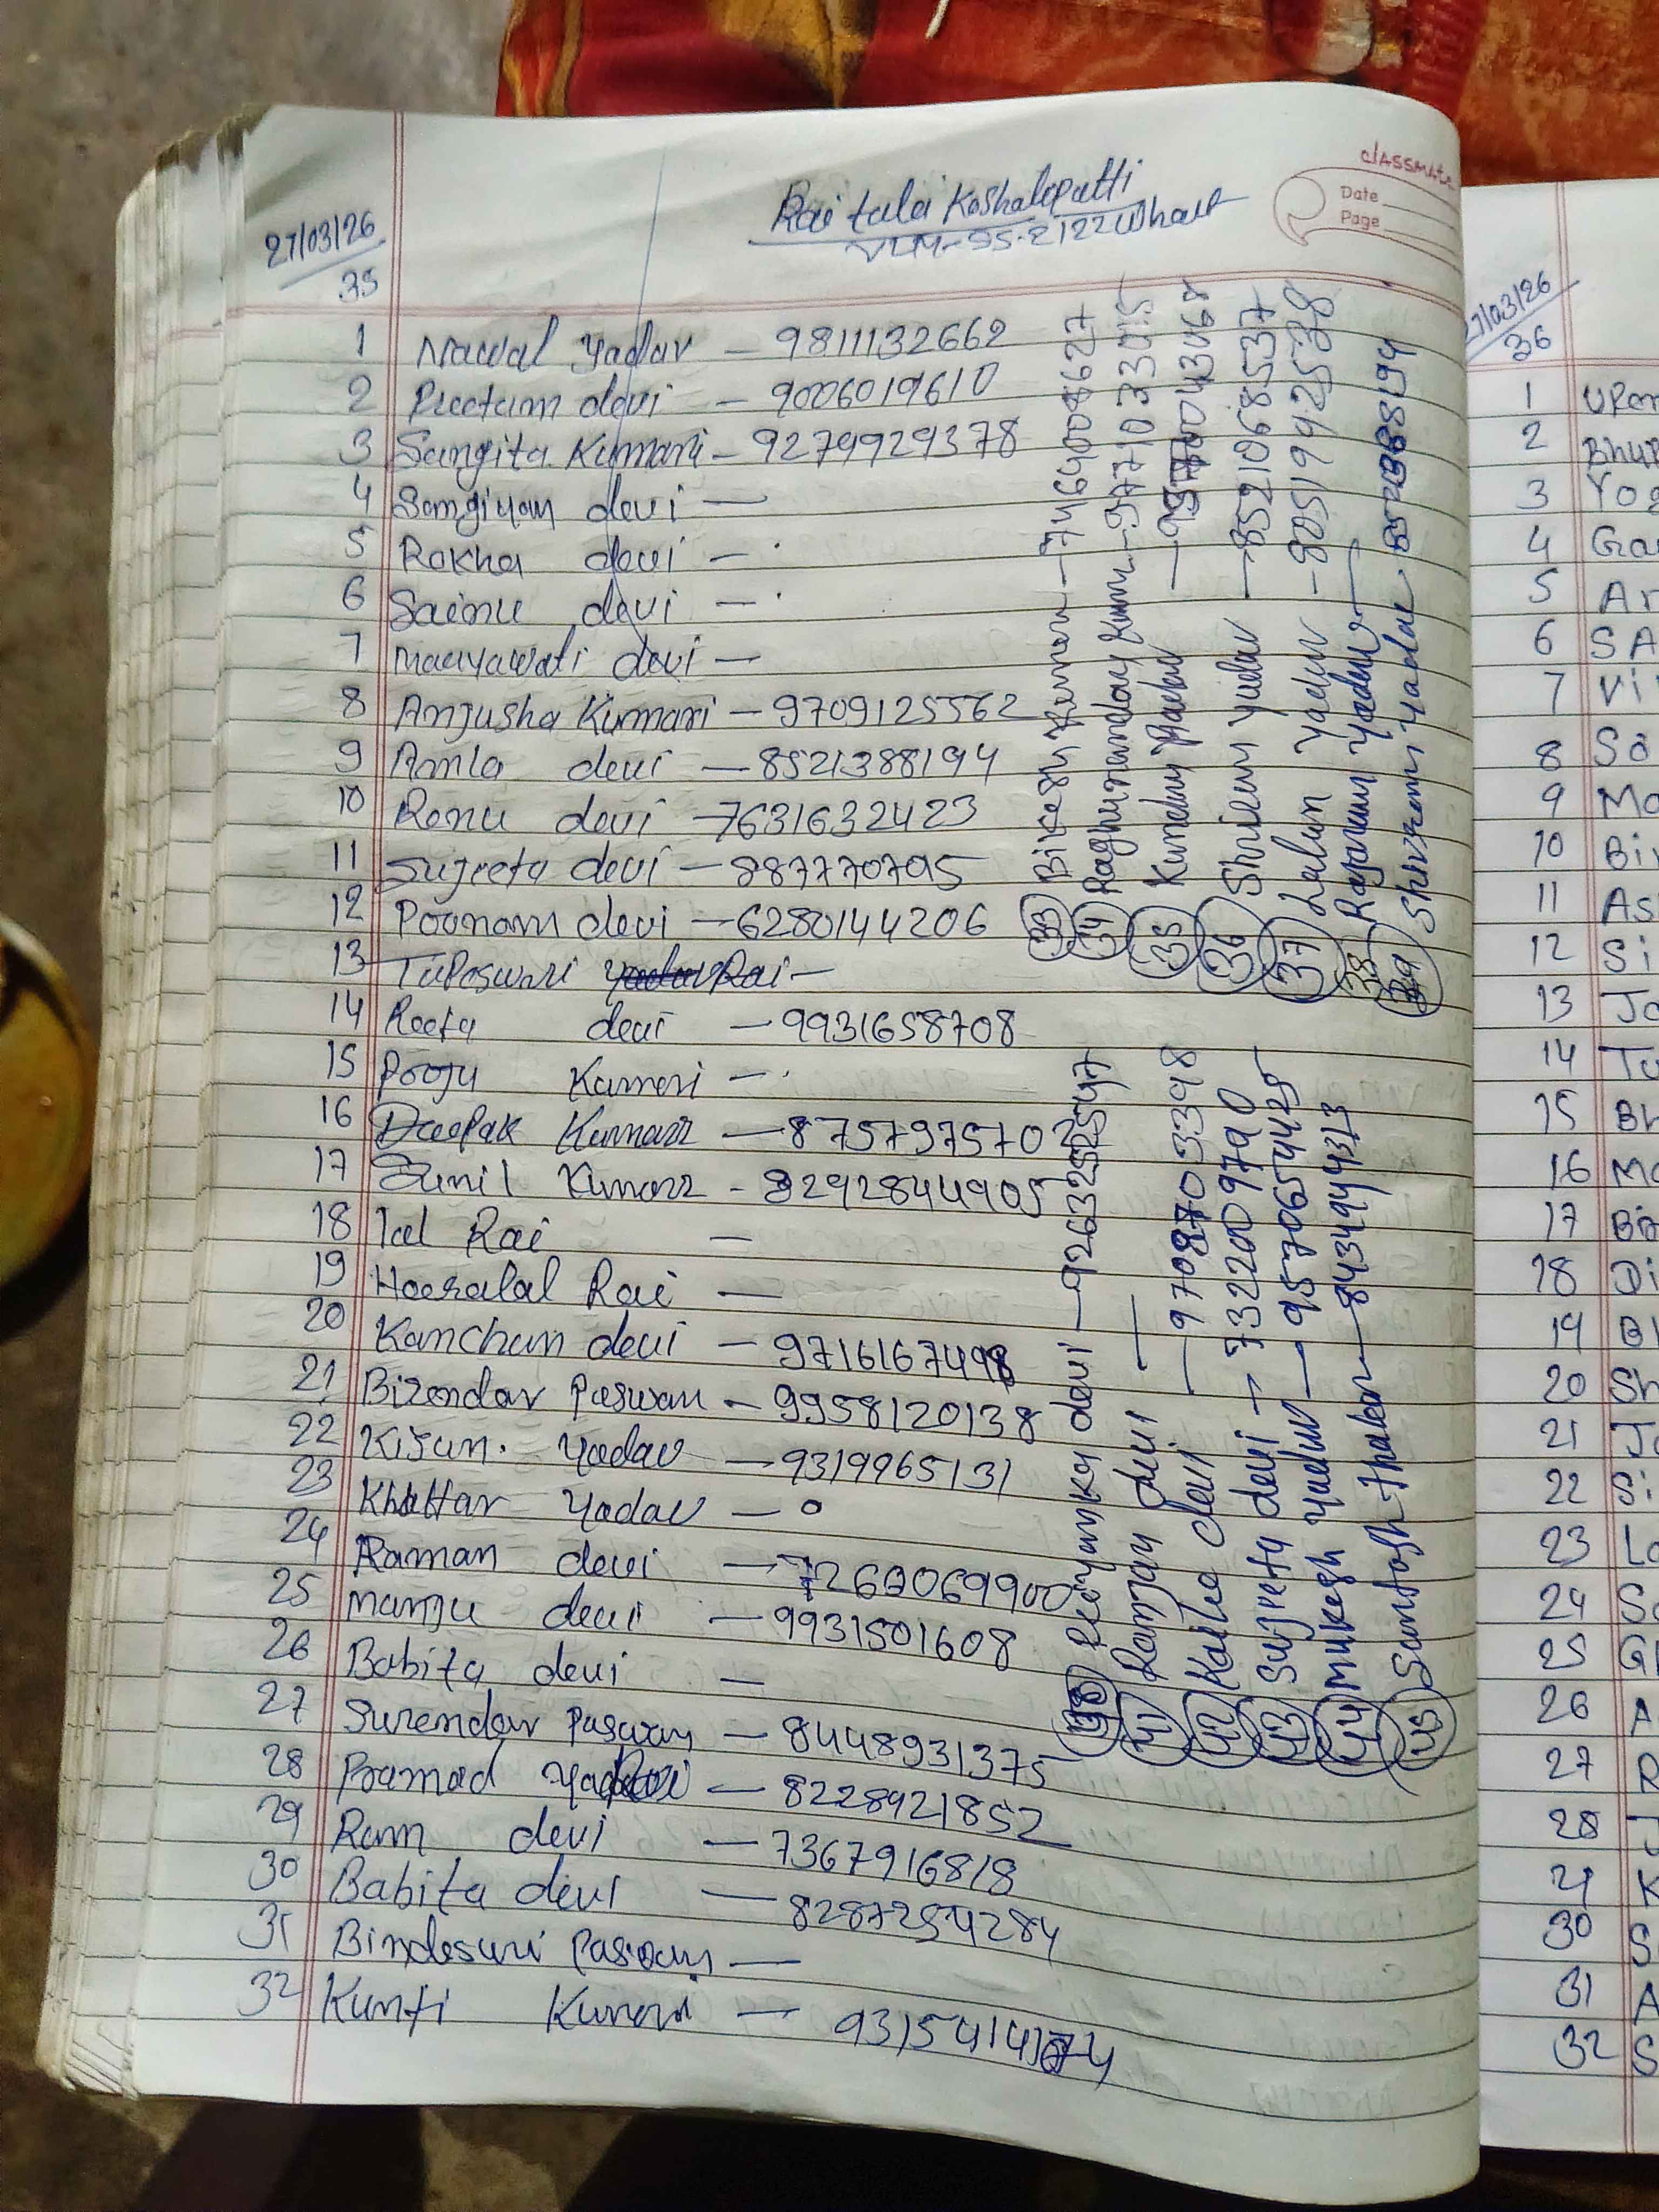 classmate
Date
Page
27/03/26
35
Rai tola Koshalepatti
1 Nawal Yadav – 9811132662
2 Preetam devi – 9006019610
3 Sangita Kumari – 9279929378
4 Sangiyam devi –
5 Rekha devi –
6 Sainu devi –
7 Maeyawati devi –
8 Anjusha Kumari – 9709125562
9 Amla devi – 8521388194
10 Renu devi – 7631632423
11 Sujeeta devi – 887770795
12 Poonam devi – 6280144206
13 Tupeswari Rai –
14 Reeta devi – 9931658708
15 Pooju Kumari –
16 Deepak Kumar – 8757975702
17 Sunil Kumar – 8292844905
18 Tal Rai –
19 Heeralal Rai –
20 Kanchan devi – 9716167498
21 Birendar Paswan – 9958120138
22 Kisun. Yadav – 9319965131
23 Khattar Yadav –
24 Raman devi – 7260069900
25 Manju devi – 9931501608
26 Babita devi –
27 Surendar Paswan – 8448931375
28 Pramod – 8228921852
29 Ram devi – 7367916818
30 Babita devi – 8287254284
31 Bindeswri Paswan –
32 Kunti Kumari –
33 Bikesh Kumar –
34 Raghunandan Kumar – 9771033415
35 Kundan –
36 Shrieum Yadav – 8521068537
37 Lalun Yadav –
38 Rajaram Yadav –
39 Shivram Yadav
Preeyanka devi – 9263252547
41 Ramjan devi –
42 Kaile devi – 9708703398
43 Sujeeta devi – 7322009790
44 Mukesh Yadav – 9570654425
45 Santosh Thakur – 8434944313
27/03/26
36
1
2
3 Yog
4
5 Ar
6 SA
7 Vi
8 So
9 Mo
10 Bi
11 As
12 Si
13 Jo
14 Tu
15 Bh
16 Mo
17
18 Di
19 Bl
20 Sh
21 Jo
22 Si
23 Lo
24 So
25 Gl
26 A
27 R
28 J
29 K
30 S
31 A
32 S